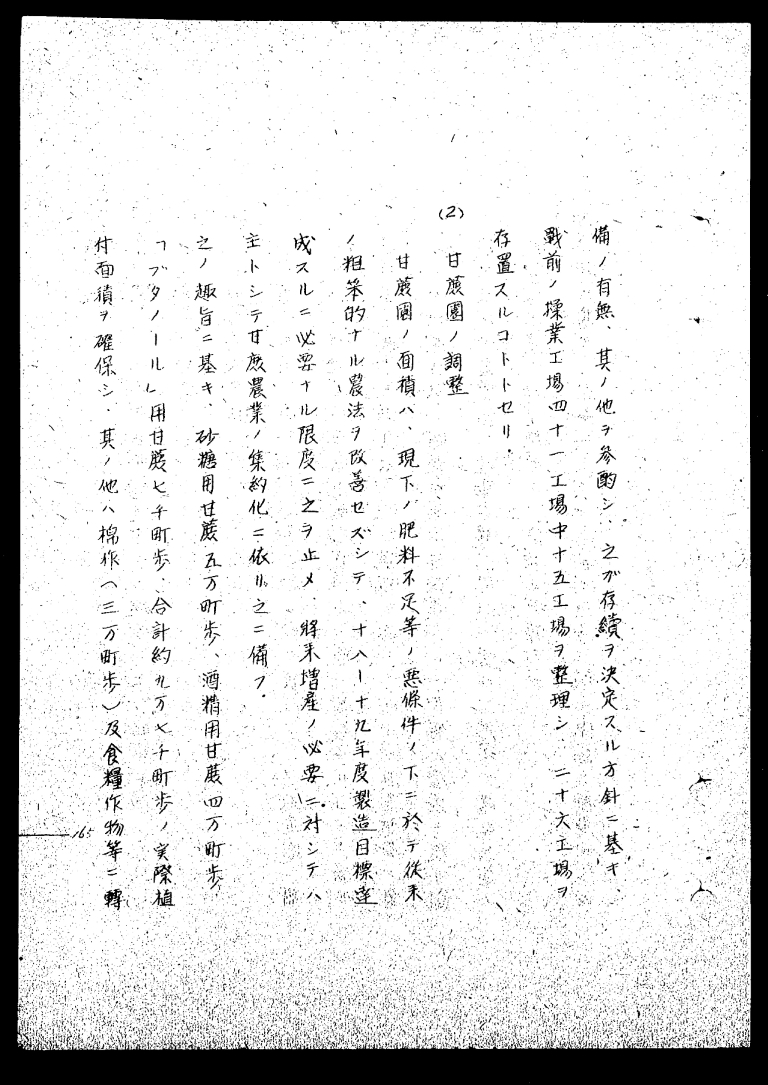 備ノ有無、其ノ他ヲ参酌シ、之ガ存續ヲ決定スル方針ニ基キ、
戰前ノ操業工場四十一工場中十五工場ヲ整理シ、二十六工場ヲ
存置スルコトトセリ。
(2) 甘蔗園ノ調整
甘蔗園ノ面積ハ、現下ノ肥料不足等ノ悪條件ノ下ニ於テ従来
ノ粗笨的ナル農法ヲ改善セズシテ、十八ー十九年度製造目標達
成スルニ必要ナル限度ニ之ヲ止メ、將来増産ノ必要ニ対シテハ
主トシテ甘蔗農業ノ集約化ニ依リ之ニ備フ。
之ノ趣旨ニ基キ、砂糖用甘蔗五万町歩、酒精用甘蔗四万町歩、
「ブタノール」用甘蔗七千町歩、合計約九万七千町歩ノ実際植
付面積ヲ確保シ、其ノ他ハ棉作(三万町歩)及食糧作物等ニ轉
165